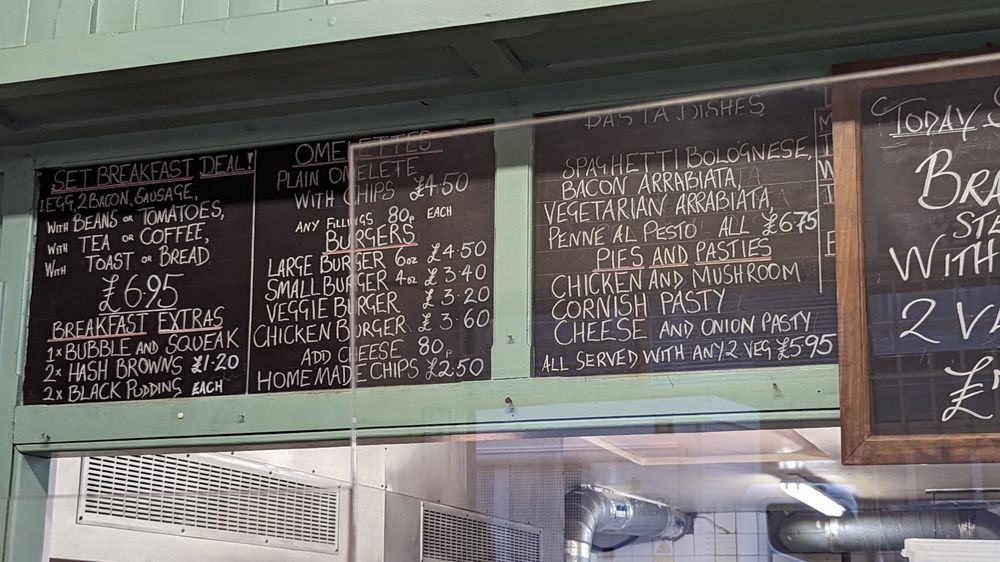 SET BREAKFAST DEAL!
1 EGG, 2 BACON, SAUSAGE,
WITH BEANS OR TOMATOES,
WITH TEA OR COFFEE,
WITH TOAST OR BREAD
£6.95
BREAKFAST EXTRAS
1x BUBBLE AND SQUEAK
2x HASH BROWNS £1.20
2x BLACK PUDDING EACH
OMELETTES
PLAIN OMELETE
WITH CHIPS £4.50
ANY FILLINGS 80p EACH
BURGERS
LARGE BURGER 6oz £4.50
SMALL BURGER 4oz £3.40
VEGGIE BURGER £3.20
CHICKEN BURGER £3.60
ADD CHEESE 80p
HOMEMADE CHIPS £2.50
PASTA DISHES
SPAGHETTI BOLOGNESE,
BACON ARRABIATA,
VEGETARIAN ARRABIATA,
PENNE AL PESTO ALL £6.75
PIES AND PASTIES
CHICKEN AND MUSHROOM
CORNISH PASTY
CHEESE AND ONION PASTY
ALL SERVED WITH ANY 2 VEG £5.95
TODAY
WITH
2